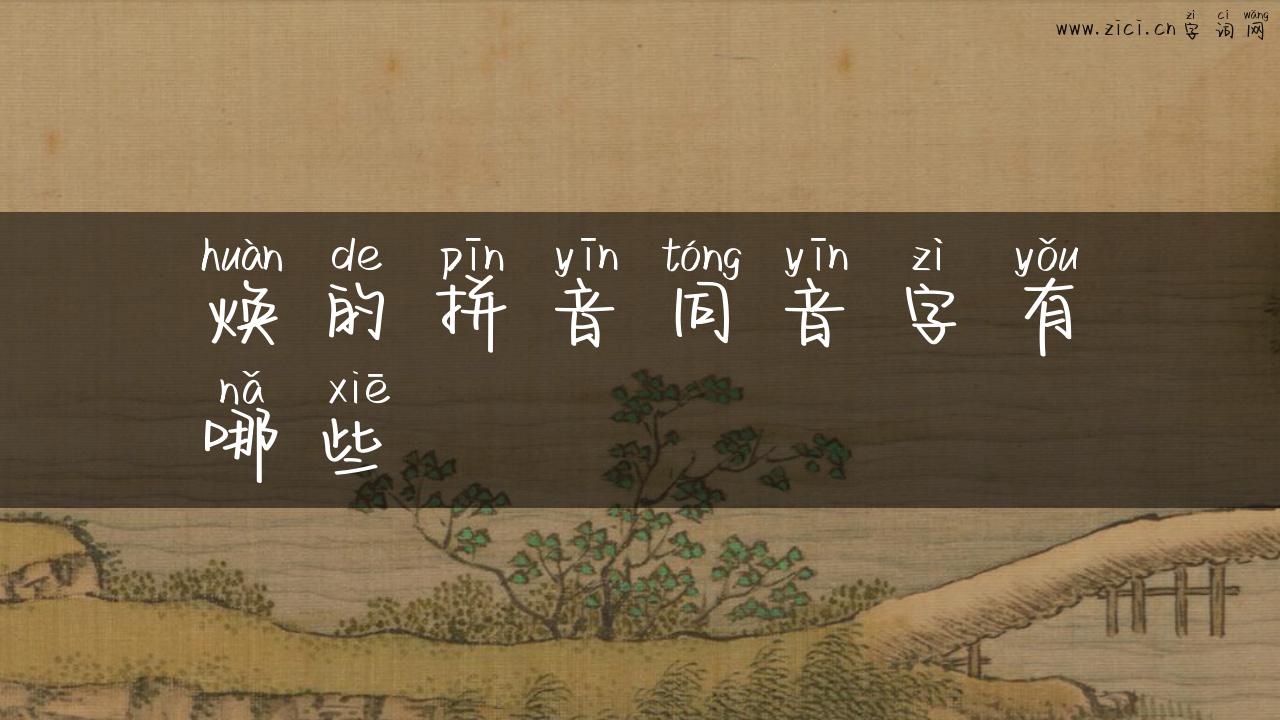 zì cí wǎng
www.zici.cn 字 词 网
huàn de pīn yīn tóng yīn zì yǒu
焕 的 拼 音 同 音 字 有
nǎ xiē
哪 些